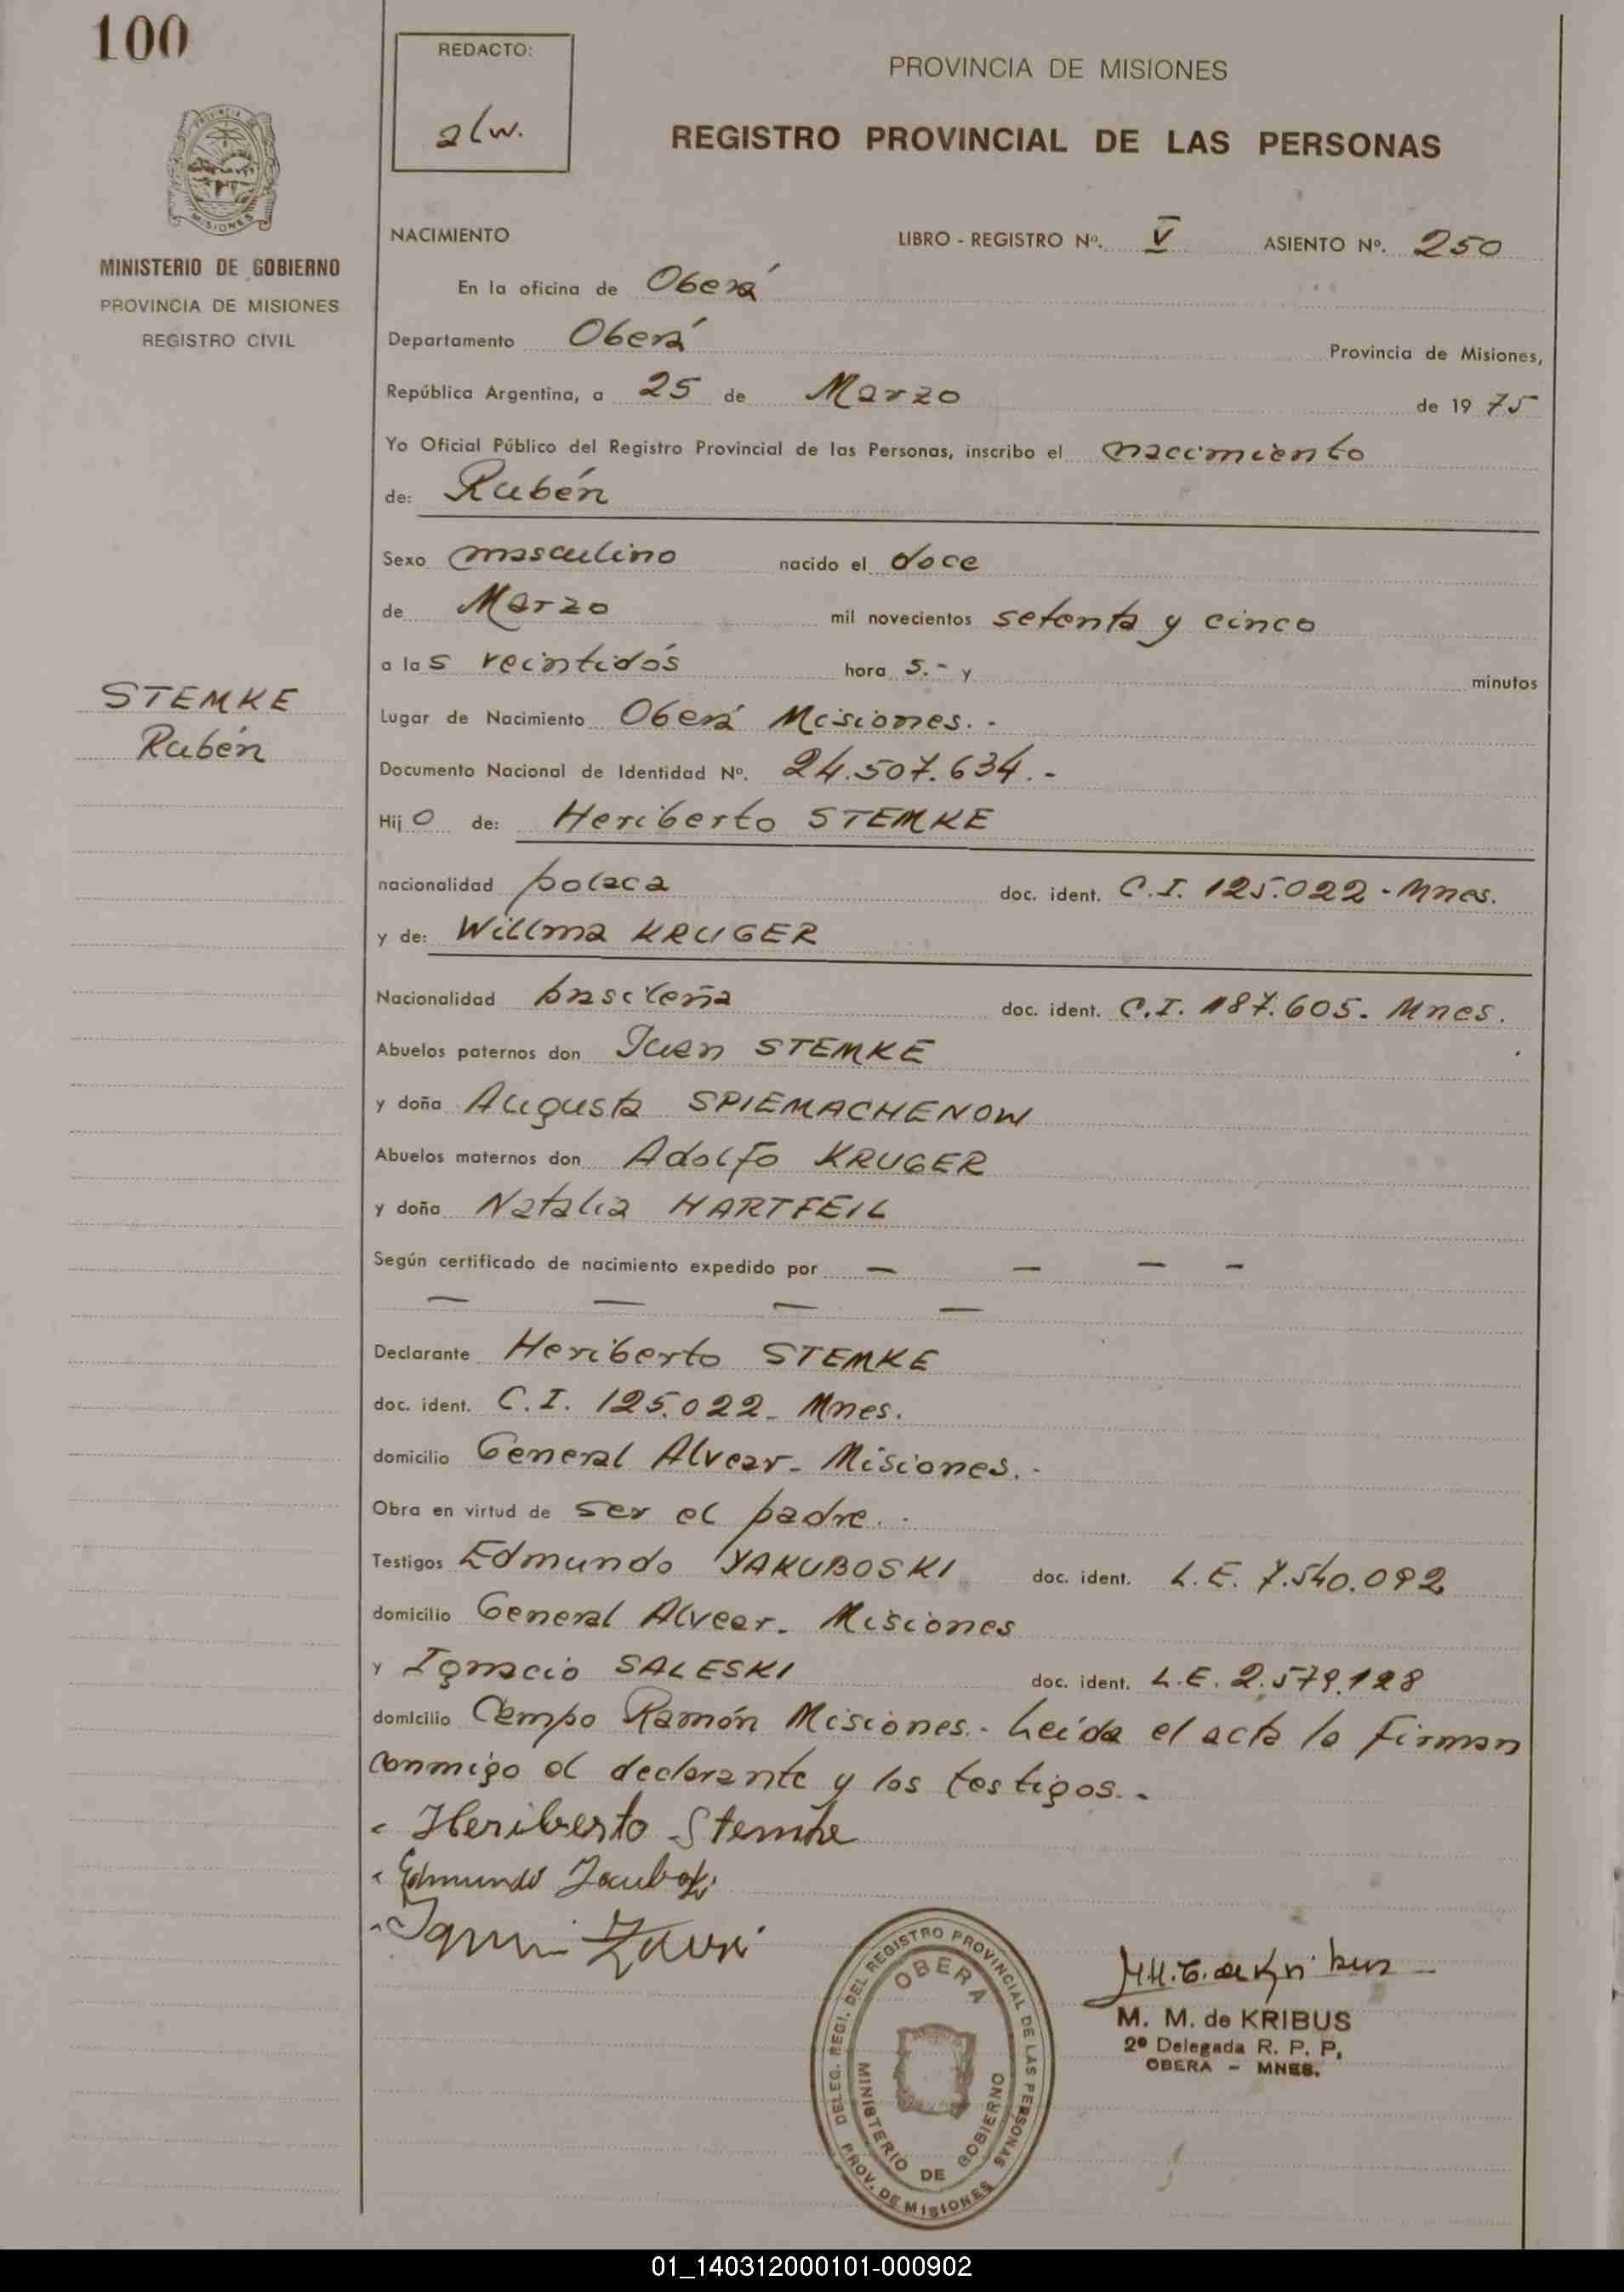 100
REDACTO:
alw.
PROVINCIA DE MISIONES
REGISTRO PROVINCIAL DE LAS PERSONAS
PROVINCIA DE
MISIONES
MINISTERIO DE GOBIERNO
PROVINCIA DE MISIONES
REGISTRO CIVIL
NACIMIENTO LIBRO - REGISTRO Nº. V ASIENTO Nº. 250
En la oficina de Oberá
Departamento Oberá Provincia de Misiones,
República Argentina, a 25 de Marzo de 19 75
Yo Oficial Público del Registro Provincial de las Personas, inscribo el nacimiento
de: Rubén
Sexo masculino nacido el doce
de Marzo mil novecientos setenta y cinco
a las veintidós hora s.- y minutos
STEMKE
Rubén
Lugar de Nacimiento Oberá Misiones.-
Documento Nacional de Identidad Nº. 24.507.634.-
Hij o de: Heriberto STEMKE
nacionalidad polaca doc. ident. C.I. 125.022 - Mnes.
y de: Willma KRUGER
Nacionalidad brasileña doc. ident. C.I. 187.605. Mnes.
Abuelos paternos don Juan STEMKE
y doña Augusta SPIEMACHENOW
Abuelos maternos don Adolfo KRUGER
y doña Natalia HARTFEIL
Según certificado de nacimiento expedido por — — — -
— — — —
Declarante Heriberto STEMKE
doc. ident. C.I. 125.022- Mnes.
domicilio General Alvear- Misiones.-
Obra en virtud de ser el padre.-
Testigos Edmundo YAKUBOSKI doc. ident. L.E. 7.540.092
domicilio General Alvear- Misiones
y Ignacio SALESKI doc. ident. L.E. 2.579.128
domicilio Campo Ramón Misiones.- Leída el acta la firman
conmigo el declarante y los testigos.-
Heriberto Stemke
Edmundo
M. M. de KRIBUS
2º Delegada R. P. P,
OBERA - MNES.
DELEG. REGI. DEL REGISTRO PROVINCIAL DE LAS PERSONAS
PROV. DE MISIONES
OBERA
MINISTERIO DE GOBIERNO
01_140312000101-000902